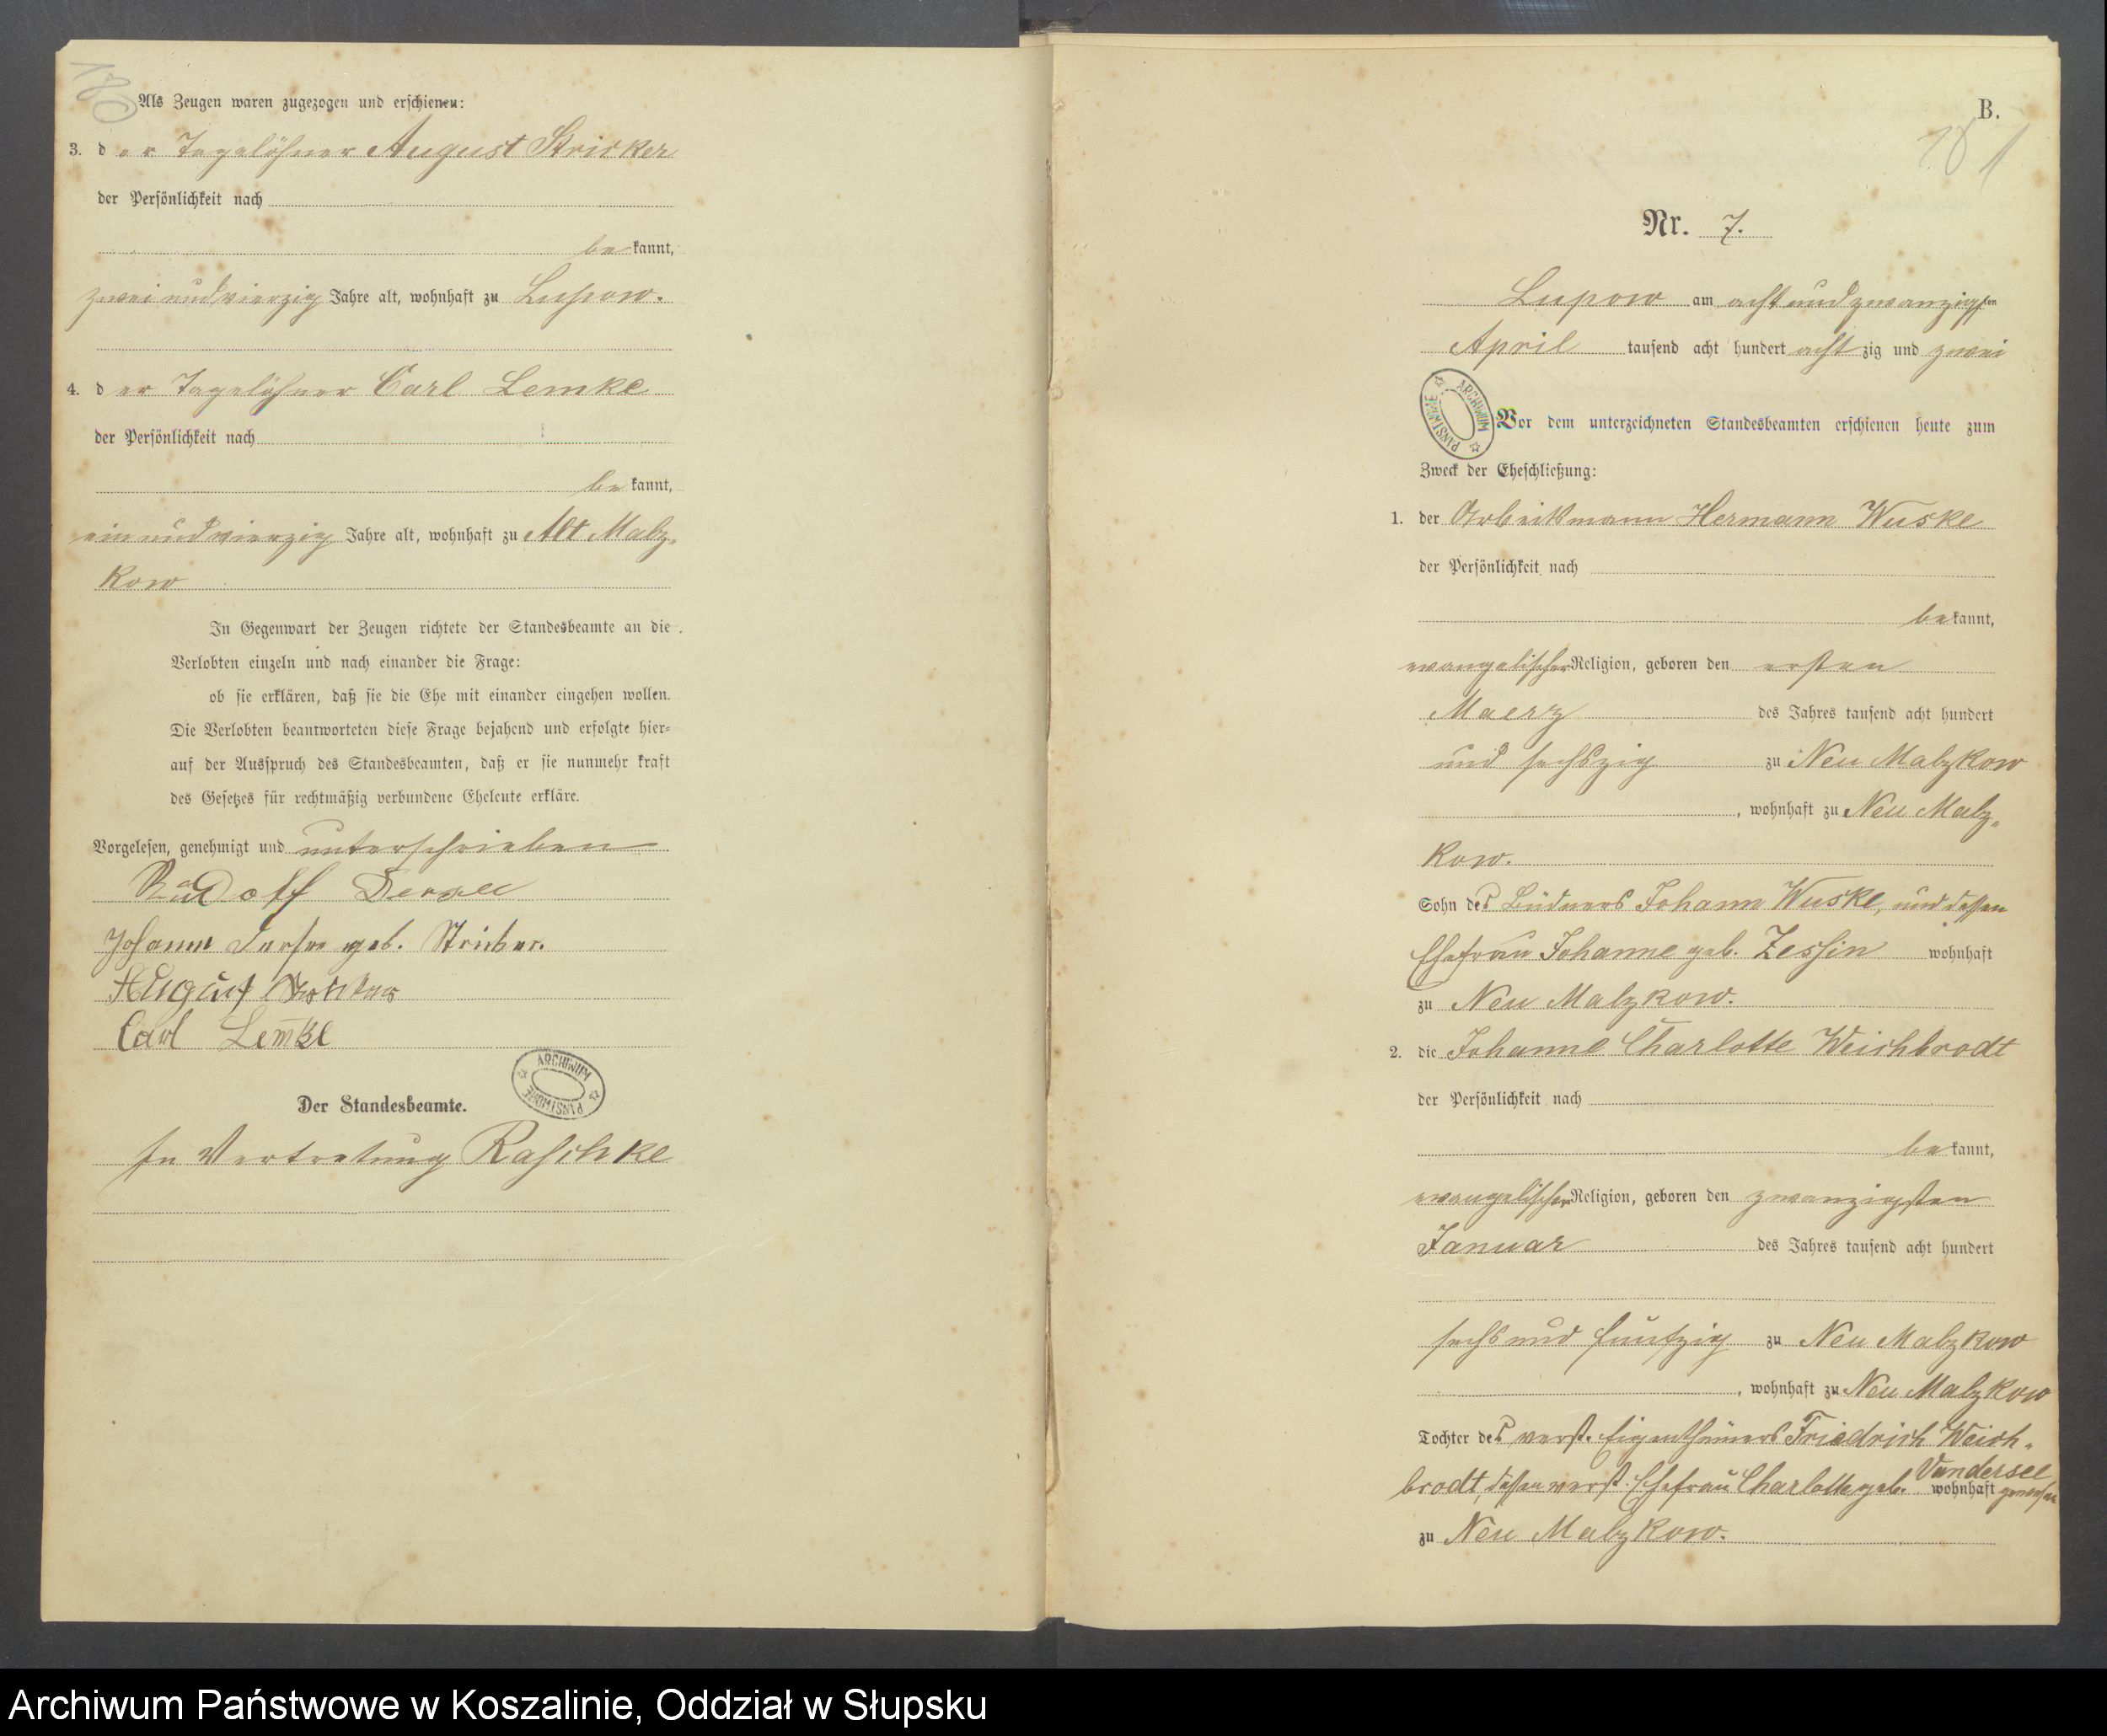 Als Zeugen waren zugezogen und erschienen:
3. der Tagelöhner August Stricker
der Persönlichkeit nach
bekannt,
zwei und vierzig Jahre alt, wohnhaft zu Lupow.
4. der Tagelöhner Carl Lemke
der Persönlichkeit nach
bekannt,
ein und vierzig Jahre alt, wohnhaft zu Alt Malz-
kow
In Gegenwart der Zeugen richtete der Standesbeamte an die
Verlobten einzeln und nach einander die Frage:
ob sie erklären, daß sie die Ehe mit einander eingehen wollen.
Die Verlobten beantworteten diese Frage bejahend und erfolgte hier-
auf der Ausspruch des Standesbeamten, daß er sie nunmehr kraft
des Gesetzes für rechtmäßig verbundene Eheleute erkläre.
Vorgelesen, genehmigt und unterschrieben
Rudolf
geb. Stricker.
August
Carl Lemke
ARCHIWUM PAŃSTWOWE
Der Standesbeamte.
In Vertretung Raschke
B.
Nr. 7.
Lupow am acht und zwanzigsten
April tausend acht hundert achtzig und zwei
ARCHIWUM PAŃSTWOWE
Vor dem unterzeichneten Standesbeamten erschienen heute zum
Zweck der Eheschließung:
1. der Arbeitsmann Hermann Wuske
der Persönlichkeit nach
bekannt,
evangelischer Religion, geboren den ersten
Maerz des Jahres tausend acht hundert
und sechszig zu Neu Malzkow
, wohnhaft zu Neu Malz-
kow.
Sohn des Büdners Johann Wuske, und dessen
Ehefrau Johanne geb. Zessin wohnhaft
zu Neu Malzkow.
2. die Johanne Charlotte Weichbrodt
der Persönlichkeit nach
bekannt,
evangelischer Religion, geboren den zwanzigsten
Januar des Jahres tausend acht hundert
sechs und fünfzig zu Neu Malzkow
, wohnhaft zu Neu Malzkow
Tochter des verst. Eigenthümers Friedrich Weich-
brodt, dessen verst. Ehefrau Charlotte geb. Vandersee wohnhaft gewesen
zu Neu Malzkow.
Archiwum Państwowe w Koszalinie, Oddział w Słupsku